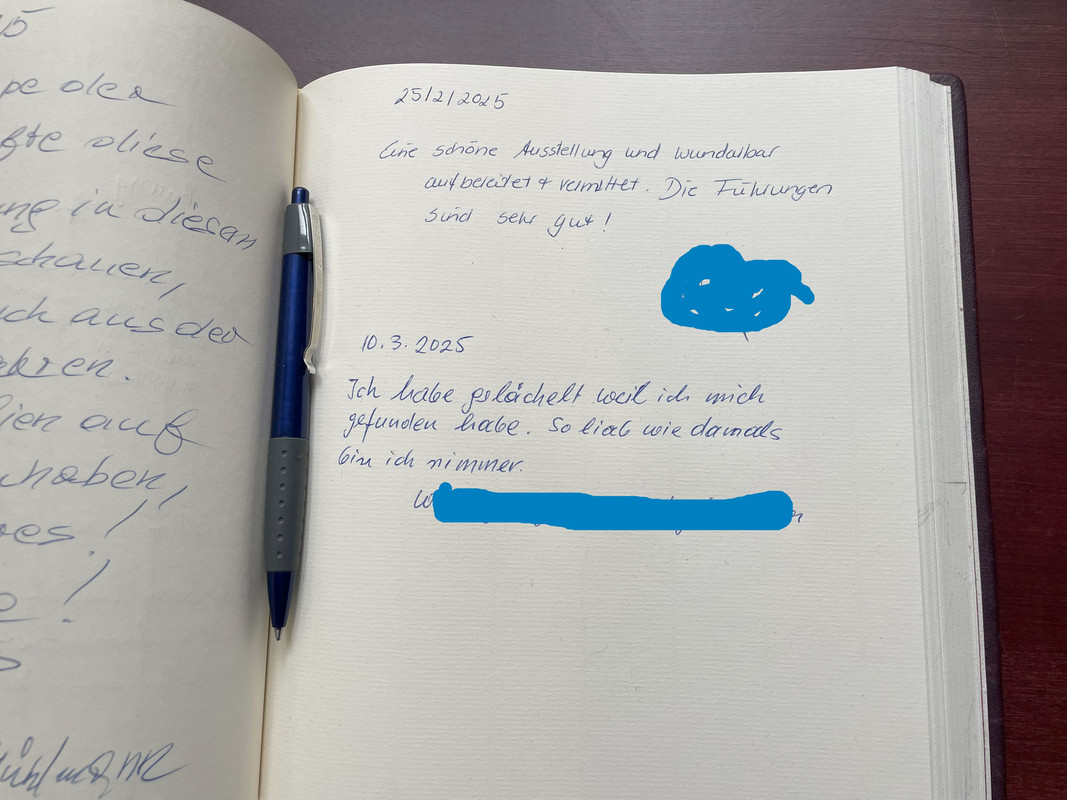 15
pe der
gte diese
ng in diesen
schauen,
ch aus der
hren.
ien auf
haben,
es!
!
25/2/2025
Eine schöne Ausstellung und wunderbar
aufbereitet + vermittet. Die Führungen
sind sehr gut!
10.3.2025
Ich habe gelächelt weil ich mich
gefunden habe. So lieb wie damals
bin ich nimmer.